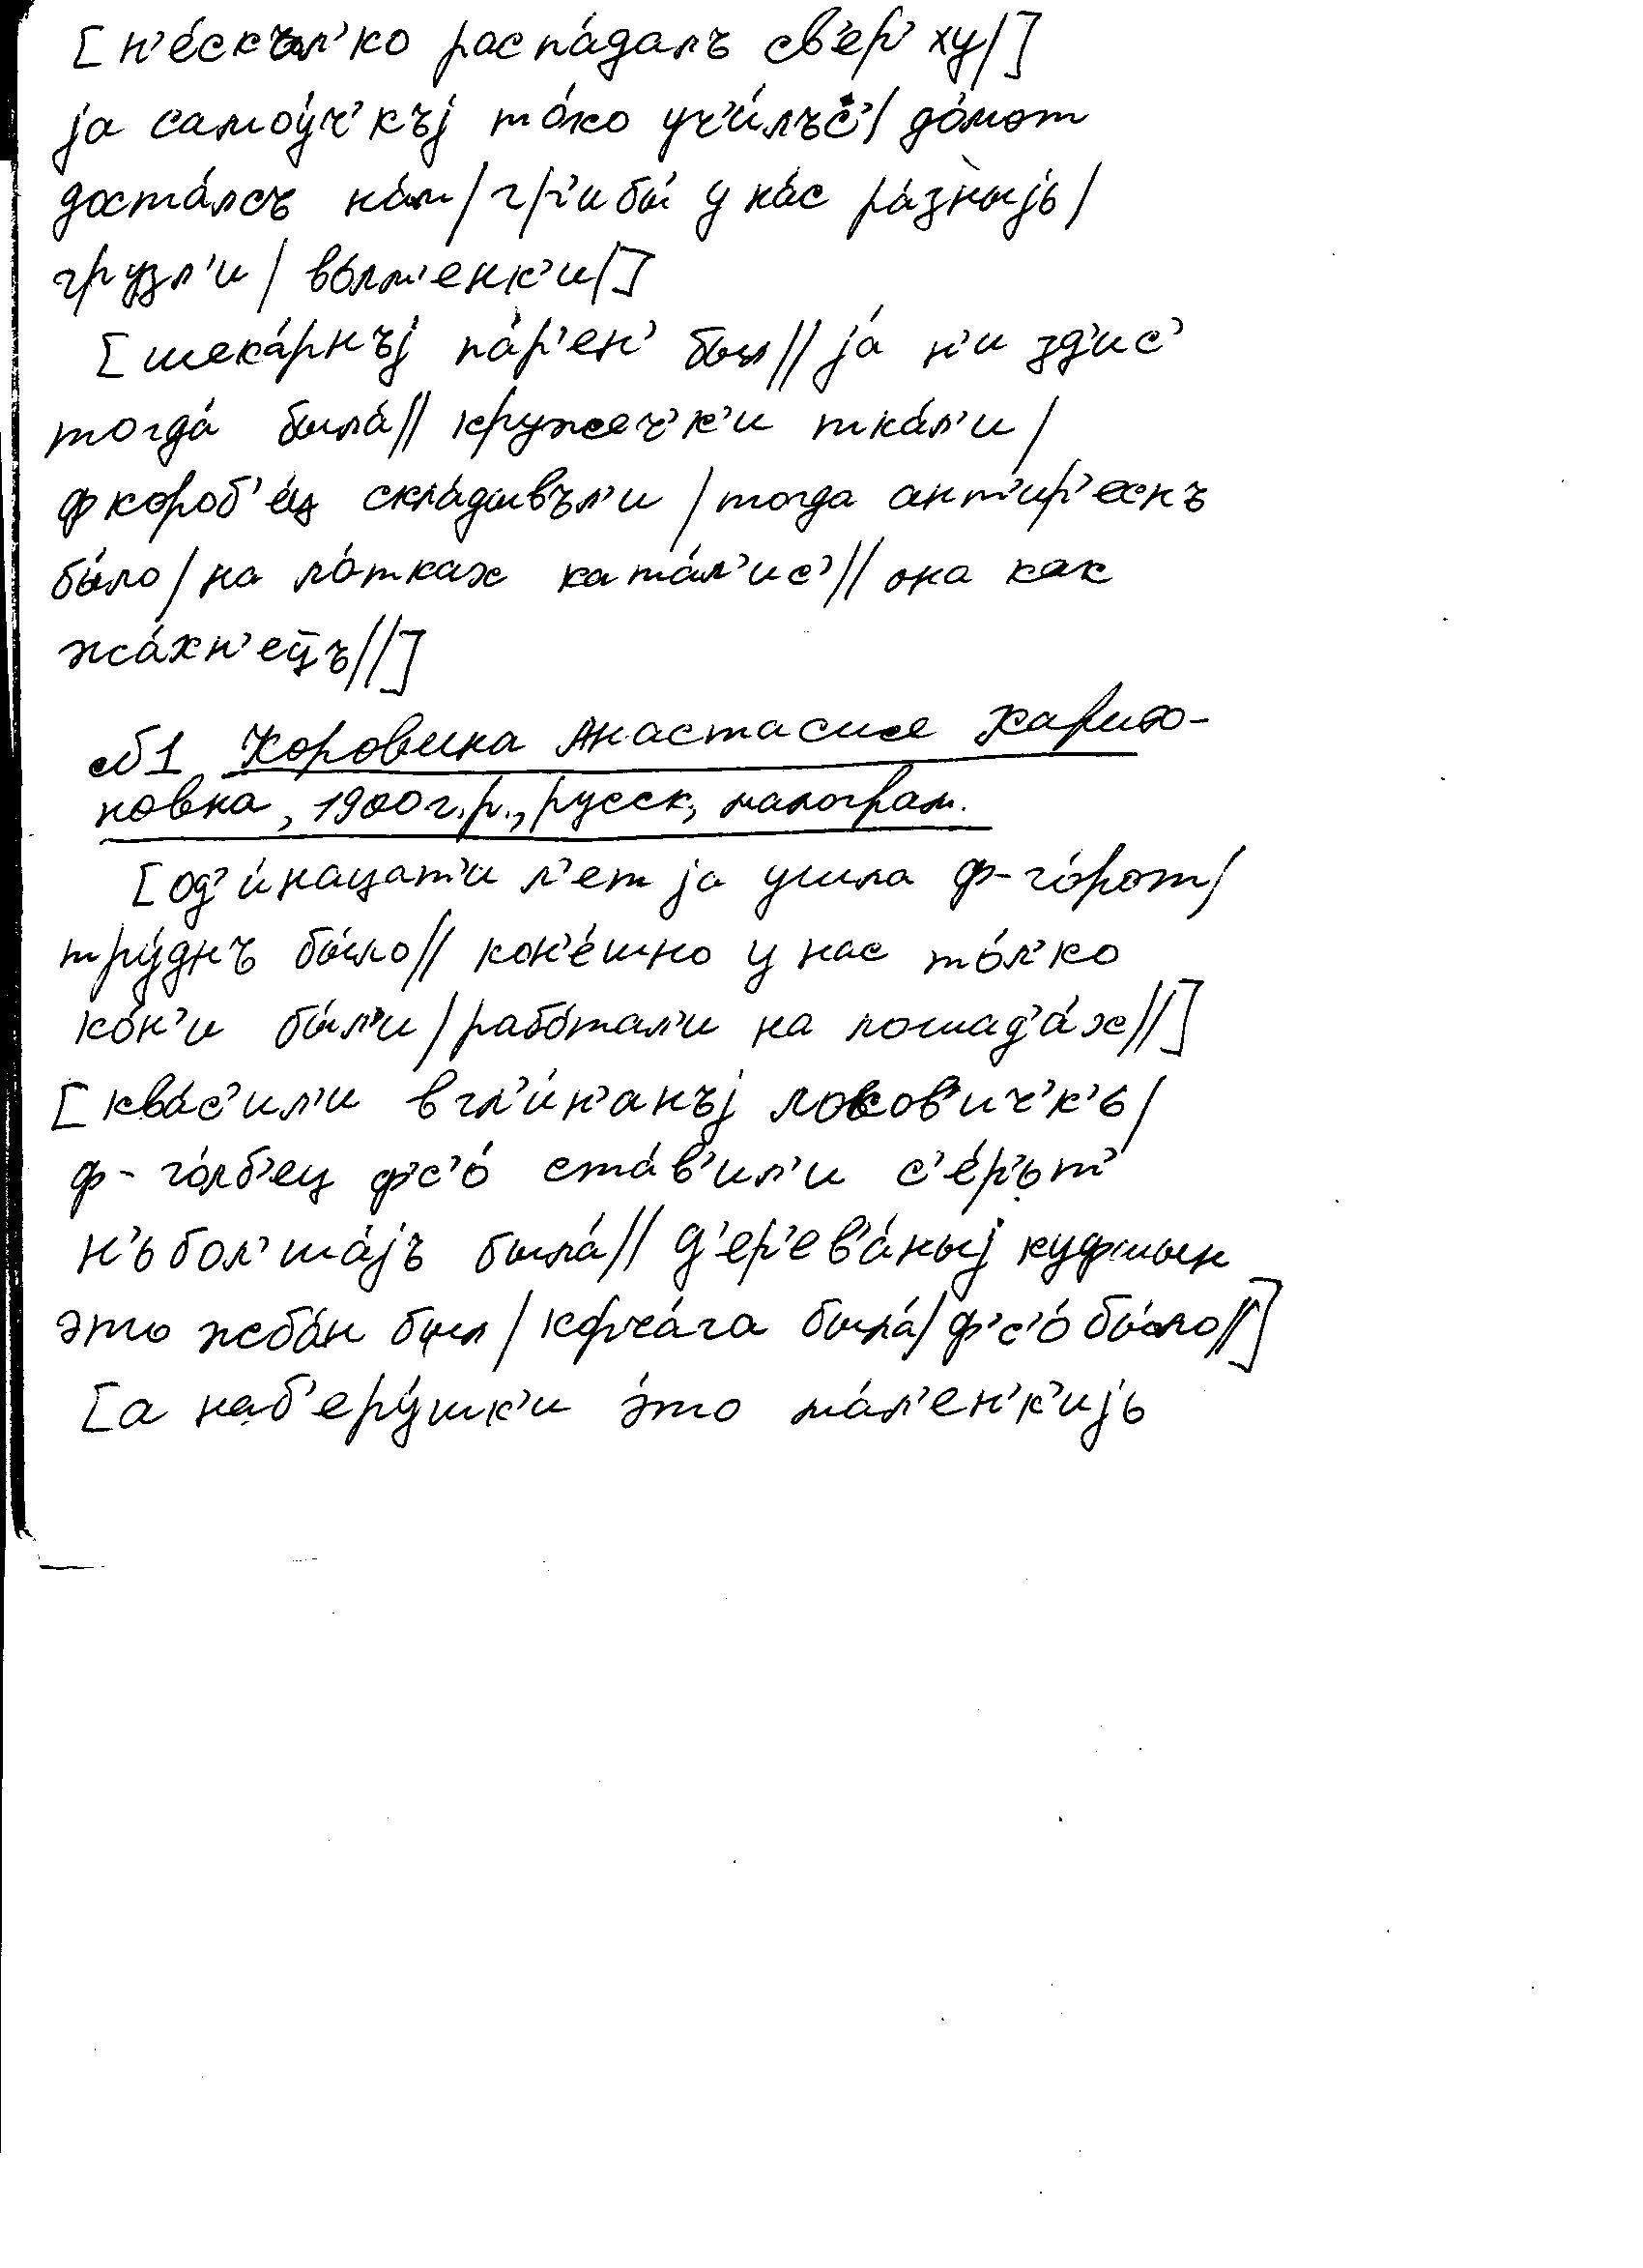 [н'е́скъл'ко распа́далъ св'ер'ху/]
ја самоу́ч'къј то́ко уч'и́лъс'/ до́мот
доста́лсъ на́м/ гр'ибы́ у на́с ра́зныјь/
грузл'и/ во́лм'енк'и/]
[шека́рнъј па́р'ен' был// ја́ н'и зд'ис'
тогда́ была́// кружеч'к'и тка́л'и/
фкороб'е́ц скла́дывъл'и/ тогда ант'ир'еснъ
бы́ло/ на ло́тках ката́л'ис'// она как
жа́хн'ецъ//]
сб1 Коровина Анастасия Харито-
новна, 1900 г.р., русск, малограм.
[од'и́нацат'и л'ет ја ушла ф-го́рот/
тру́днъ бы́ло// кон'е́шно у нас то́л'ко
ко́н'и бы́л'и/ рабо́тал'и на лошад'а́х//]
[ква́с'ил'и вгл'и́н'анъј локов'ич'к'ь/
ф-го́лб'ец ф'с'о́ ста́в'ил'и с'е́р'ьт'
н'ьбол'ша́јъ была́// д'ер'ев'а́ныј куфшын
это жба́н был/ корча́га была́/ ф'с'о́ бы́ло//]
[а наб'еру́шк'и э́то ма́л'ен'к'ијь